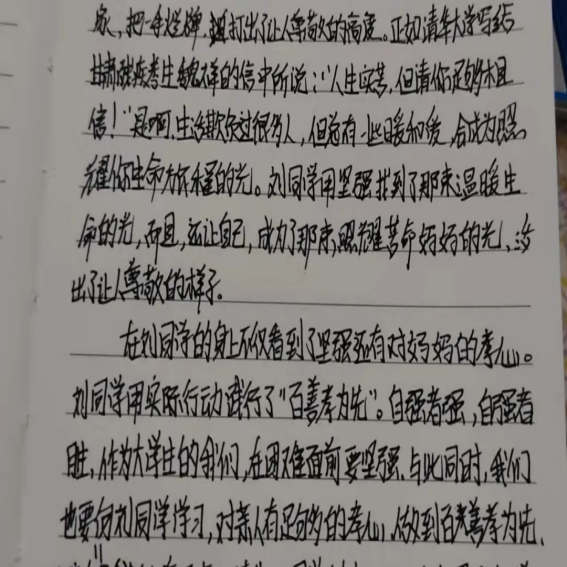 家,把一手烂牌,打出了让人尊敬的高度。正如清华大学写给
甘肃残疾考生魏祥的信中所说:“人生实苦,但请你足够相
信!”是啊,生活欺负过很多人,但总有一些暖和爱,会成为照
耀你生命方方的光。刘同学用坚强找到了那束温暖生
命的光,而且,还让自己,成为了那束照耀苦命妈妈的光,活
出了让人尊敬的样子。
在刘同学的身上不仅看到了坚强还有对妈妈的孝心。
刘同学用实际行动践行了“百善孝为先”。自强者强,自强者
胜,作为大学生的我们,在困难面前要坚强,与此同时,我们
也要向刘同学学习,对亲人有足够多的孝心,做到百善孝为先.